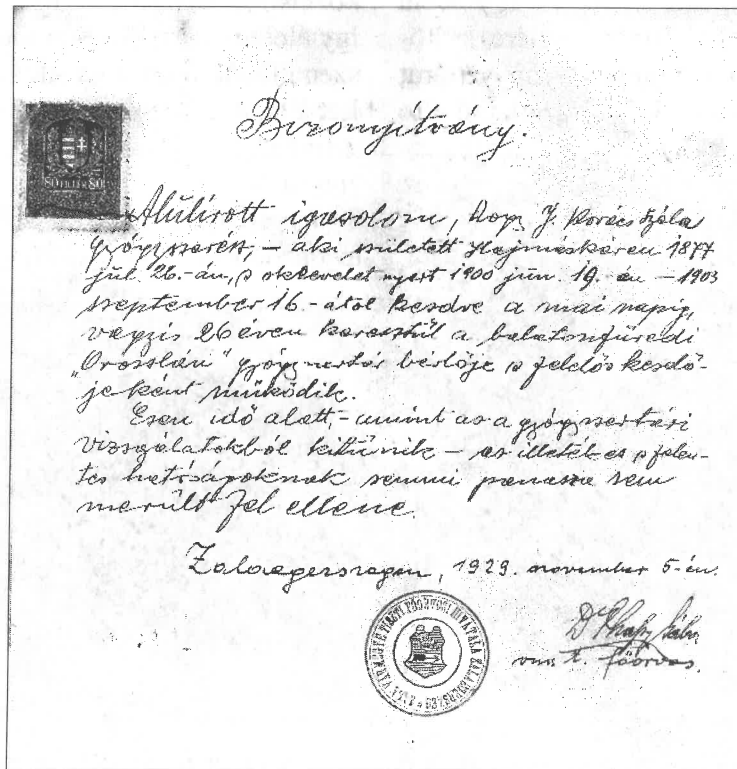 80 FILLÉR 80
Bizonyítvány.
Alulírott igazolom, hogy J. Kovács Béla
gyógyszerész, – aki született Hajmáskéren 1877
júl. 26.-án, s oklevelet nyert 1900 jún. 19.-én – 1903
szeptember 16.-ától kezdve a mai napig,
vagyis 26 éven keresztül a balatonfüredi
"Oroszlán" gyógyszertár bérlője s felelős kezelő-
jeként működik.
Ezen idő alatt, – amint az a gyógyszertári
vizsgálatokból kitűnik – az illetékes s
hatóságoknak semmi panasza sem
merült fel ellene.
Zalaegerszegen, 1929. november 5-én.
Dr
vm. t. főorvos.
ZALA VÁRMEGYE TISZTI FŐORVOSI HIVATALA ZALAEGERSZEG